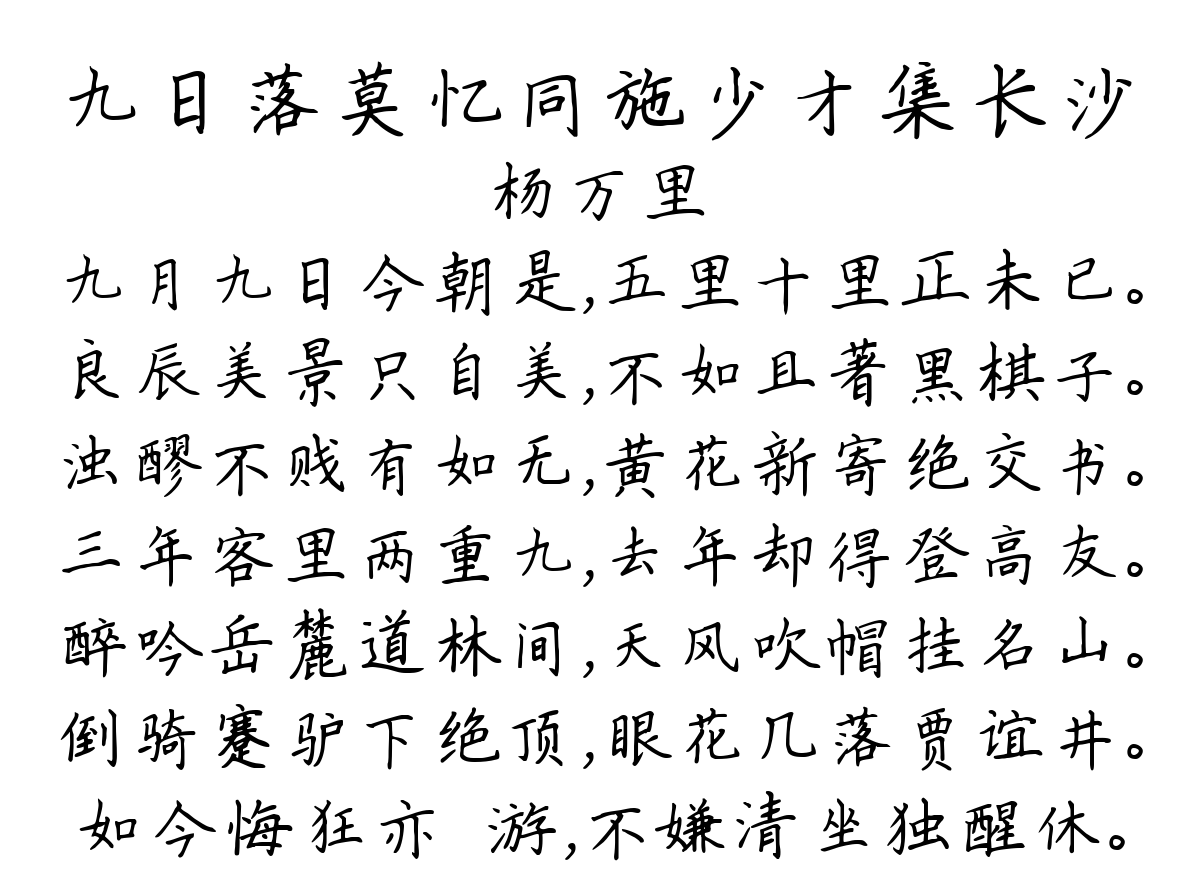 九日落莫忆同施少才集长沙
杨万里
九月九日今朝是,五里十里正未已。
良辰美景只自美,不如且著黑棋子。
浊醪不贱有如无,黄花新寄绝交书。
三年客里两重九,去年却得登高友。
醉吟岳麓道林间,天风吹帽挂名山。
倒骑蹇驴下绝顶,眼花几落贾谊井。
如今悔狂亦 游,不嫌清坐独醒休。